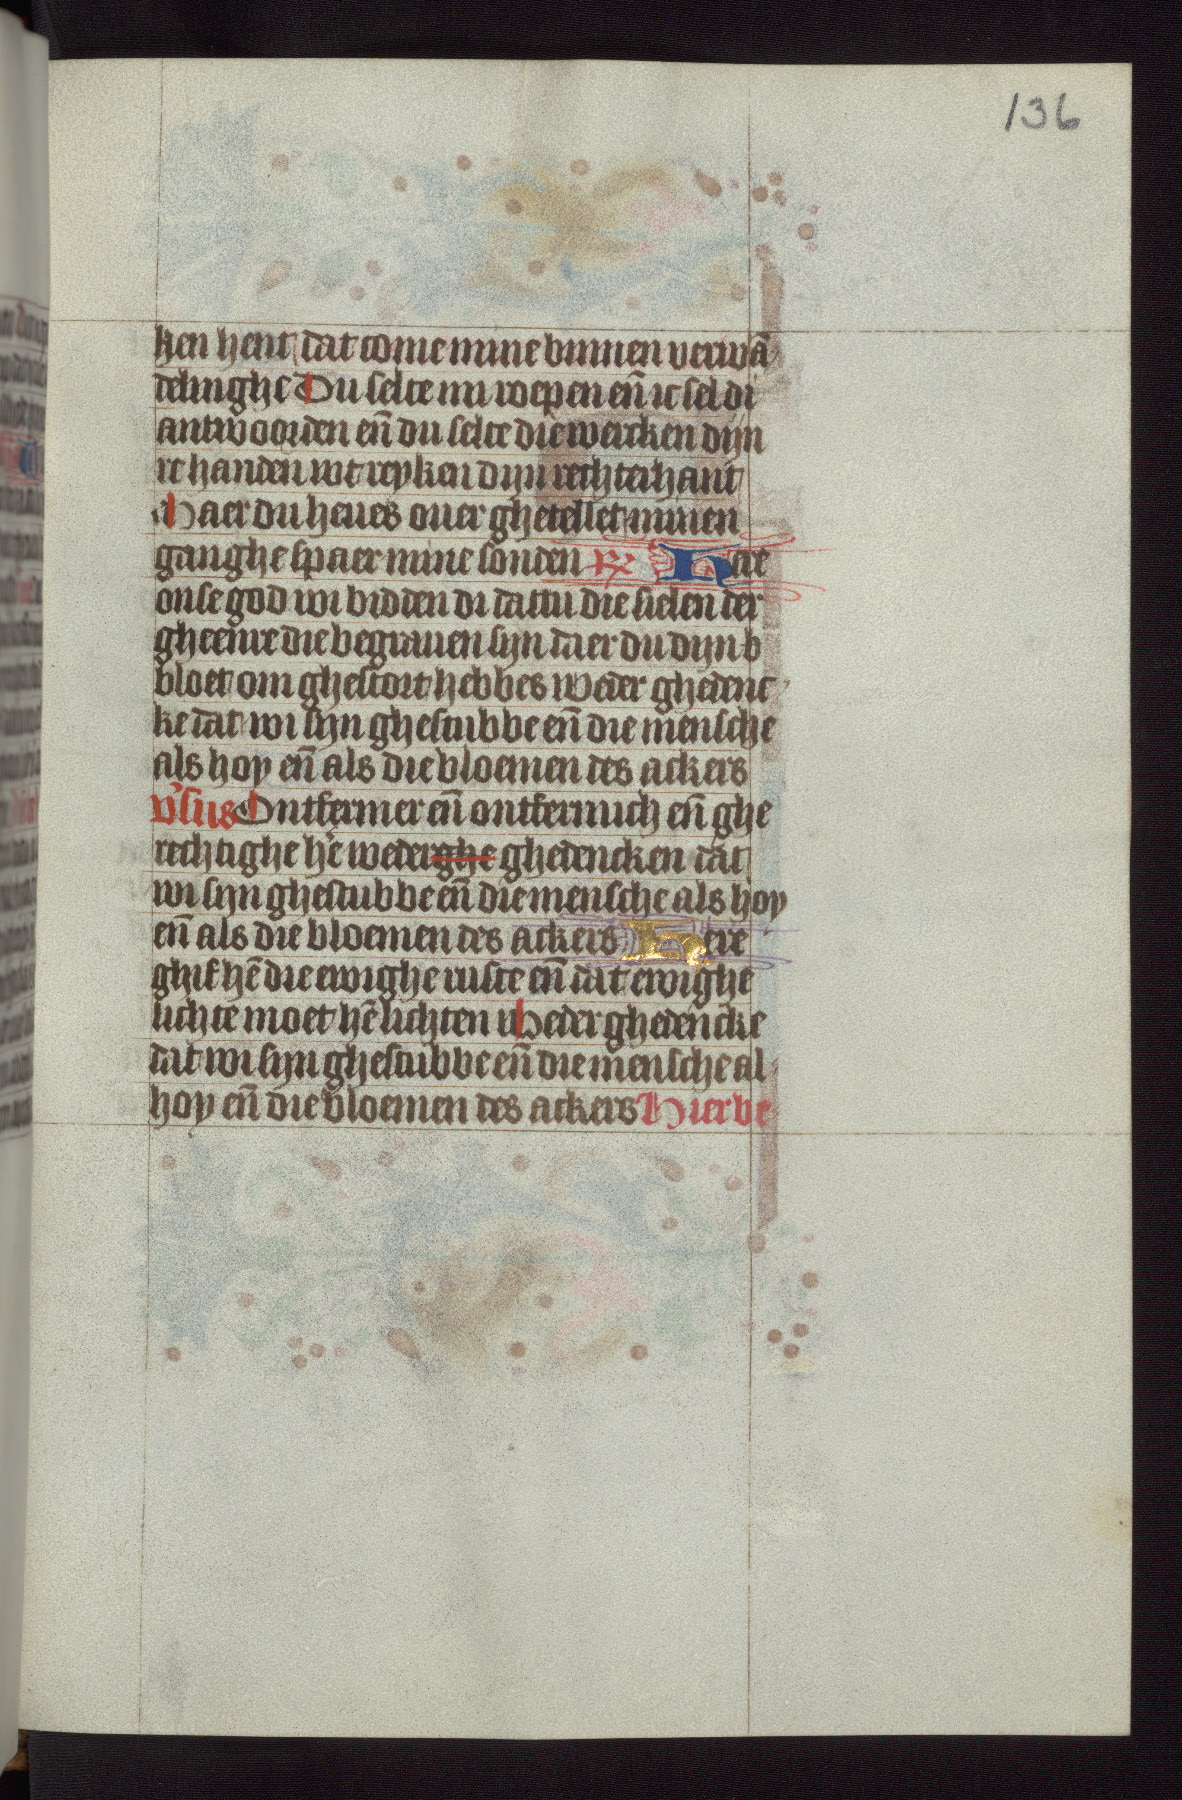 136
ken hent dat come mine binnen verwā
delinghe Du selte mi roepen eñ ic sel di
antwoorden eñ du selte die wercken dijn
re handen wt reyken dijn rechterhant
Maer du heves over ghetellet minen
ganghe spaer mine sonden ℟ Here
onse god wi bidden di dattu die sielen der
gheenre die begraven sijn daer du dijn b
bloet om ghestort hebbes weder ghedenc
ke dat wi sijn ghestubbe eñ die mensche
als hoy eñ als die bloemen des ackers
v̾sus Ontfermer eñ ontfermich eñ ghe
rechtighe he͞ wederghe ghedencken dat
wi sijn ghestubbe eñ die mensche als hoy
eñ als die bloemen des ackers Here
ghif hē die ewighe ruste eñ dat ewighe
lichte moet hē lichten Weder ghedencke
dat wi sijn ghestubbe eñ die mensche al
hoy eñ die bloemen des ackers Hier be